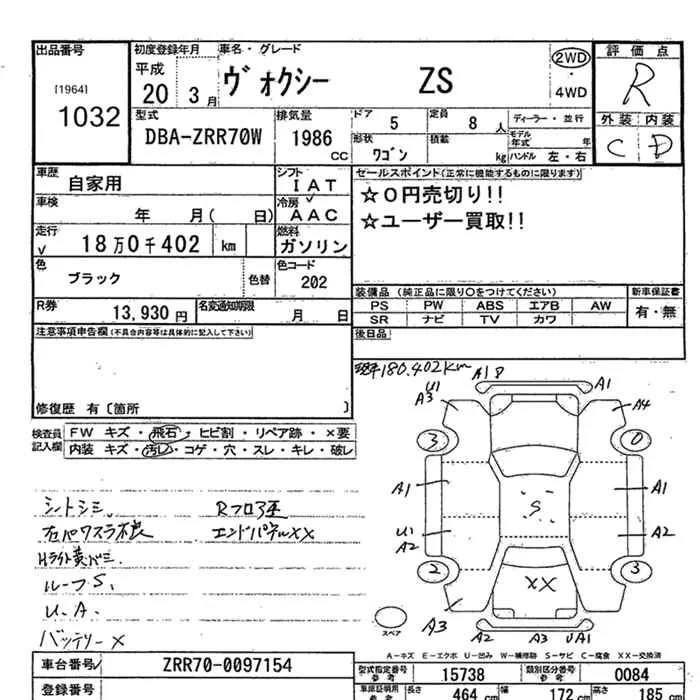 出品番号 初度登録年月 車名・グレード 評価点
[1964] 平成 ヴォクシー ZS 2WD R
1032 20 3 月 ・ 4WD
外装 内装
型式 排気量 ドア 5 定員 8 人 ディーラー・並行 C D
DBA-ZRR70W 1986 cc 形状 ワゴン 積載 kg モデル年式 年
ハンドル 左・右
車歴 自家用 シフト IAT セールスポイント(正常に機能するものに限ります)
車検 年 月( 日) 冷房 AAC ☆0円売切り!!
走行 18万0千402 km 燃料 ガソリン ☆ユーザー買取!!
色 ブラック 色替 色コード 202
装備品 (純正品に限り○をつけてください) 新車保証書
R券 13,930円 名変通知期限 月 日 PS PW ABS エアB AW 有・無
SR ナビ TV カワ
注意事項申告欄(不具合内容等は具体的に記入して下さい) 後日品
180.402km
修復歴 有〔箇所 〕
検査員記入欄 FW キズ・飛石・ヒビ割・リペア跡・×要
内装 キズ・汚レ・コゲ・穴・スレ・キレ・破レ
A1 A1
U1
A3 A4
3 0
A1 A1
S
U1
A2 A2
2 3
XX
A3
A2 A3 UA1
スペア
ルーフS.
U.A.
バッテリー×
エンドパネルXX
A-キズ E-エクボ U-凹み W-補修跡 S-サビ C-腐食 XX-交換済
車台番号 ZRR70-0097154 型式指定番号 参考 15738 類別区分番号 参考 0084
登録番号 車庫証明用 参考 長さ 464 cm 幅 172 cm 高さ 185 cm